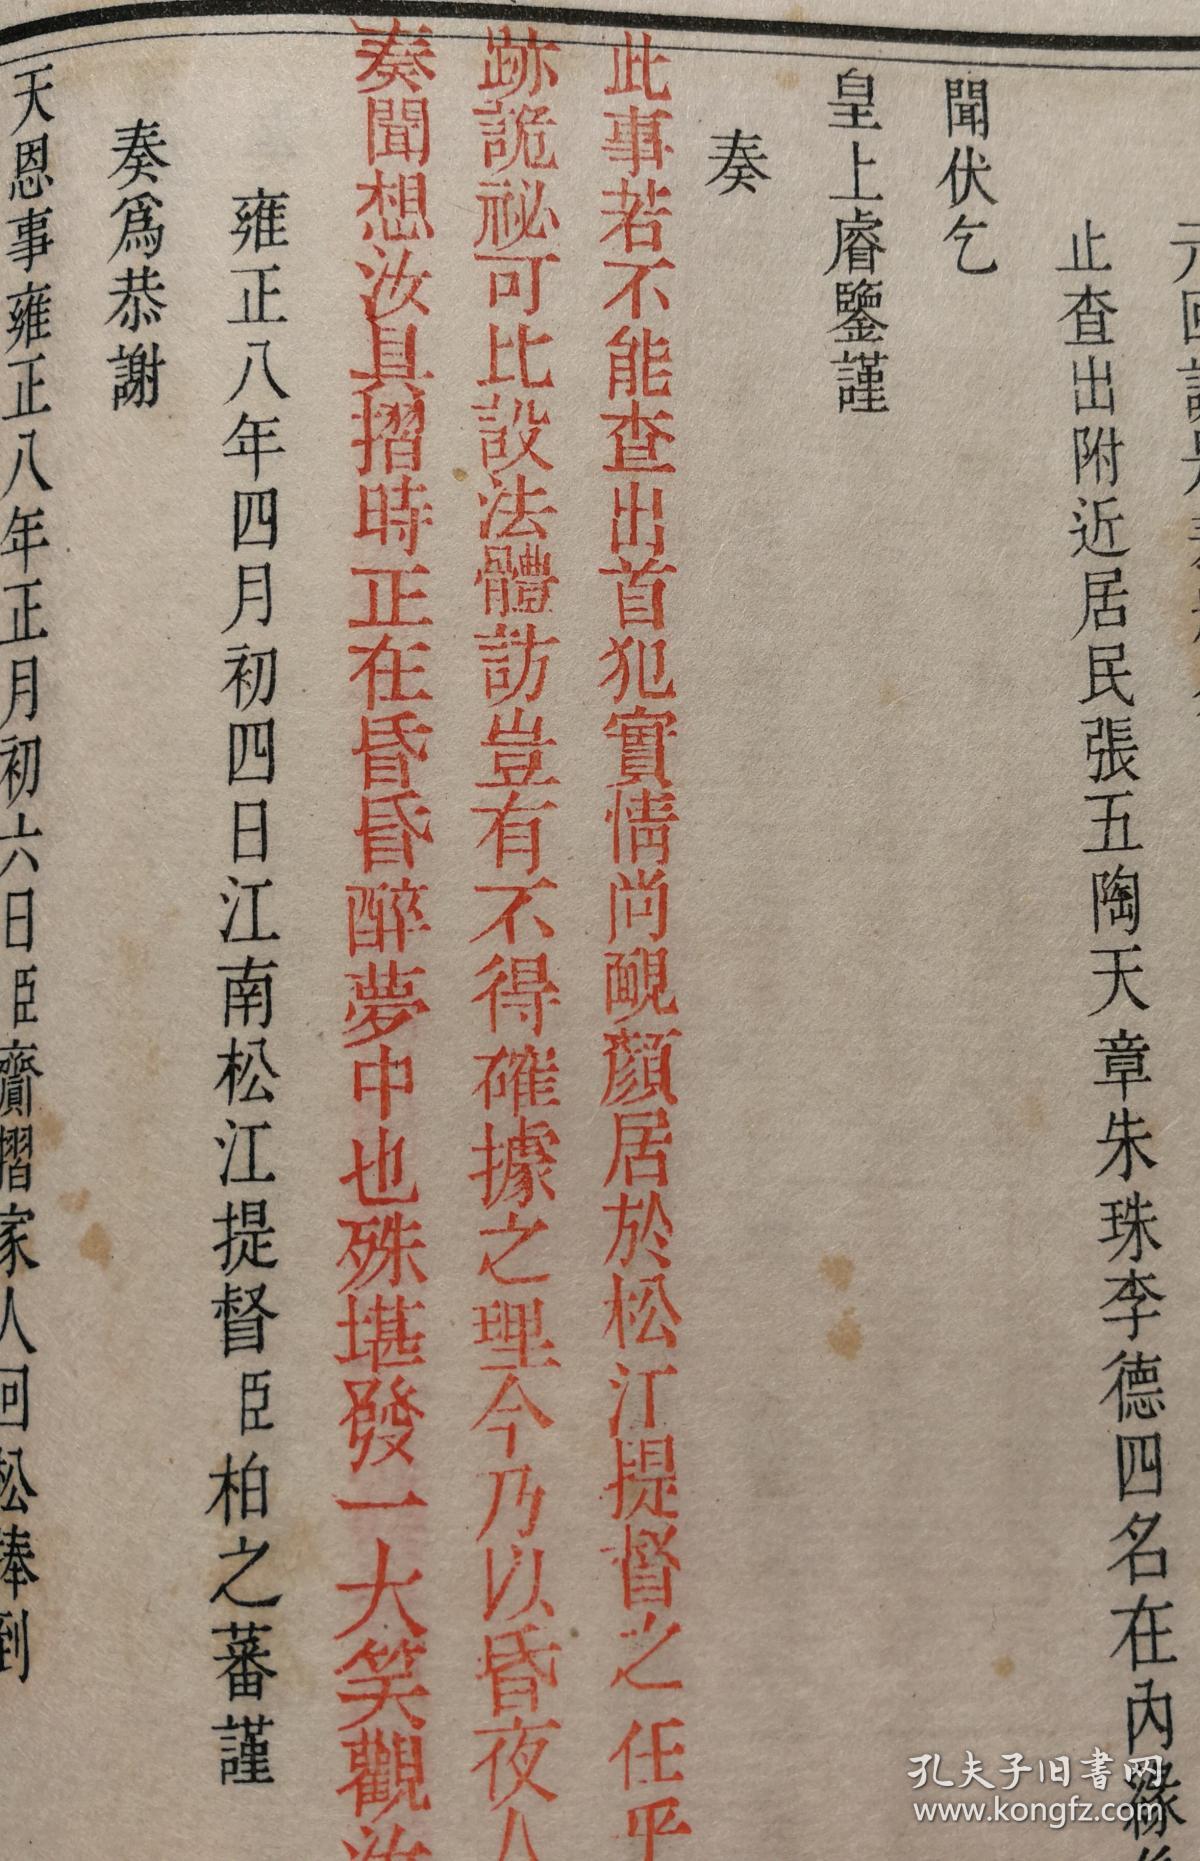 止查出附近居民張五陶天章朱珠李德四名在內緣
聞伏乞
皇上睿鑒謹
奏
此事若不能查出首犯實情尚靦顏居於松江提督之任乎
跡詭祕可比設法體訪豈有不得確據之理今乃以昏夜人
奏聞想汝具摺時正在昏昏醉夢中也殊堪發一大笑觀汝
雍正八年四月初四日江南松江提督臣柏之蕃謹
奏爲恭謝
天恩事雍正八年正月初六日臣齎摺家人回松捧到
孔夫子旧书网
www.kongfz.com